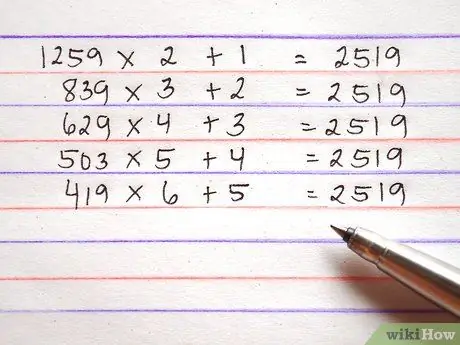 1259 × 2 + 1 = 2519
839 × 3 + 2 = 2519
629 × 4 + 3 = 2519
503 × 5 + 4 = 2519
419 × 6 + 5 = 2519
wikiHow